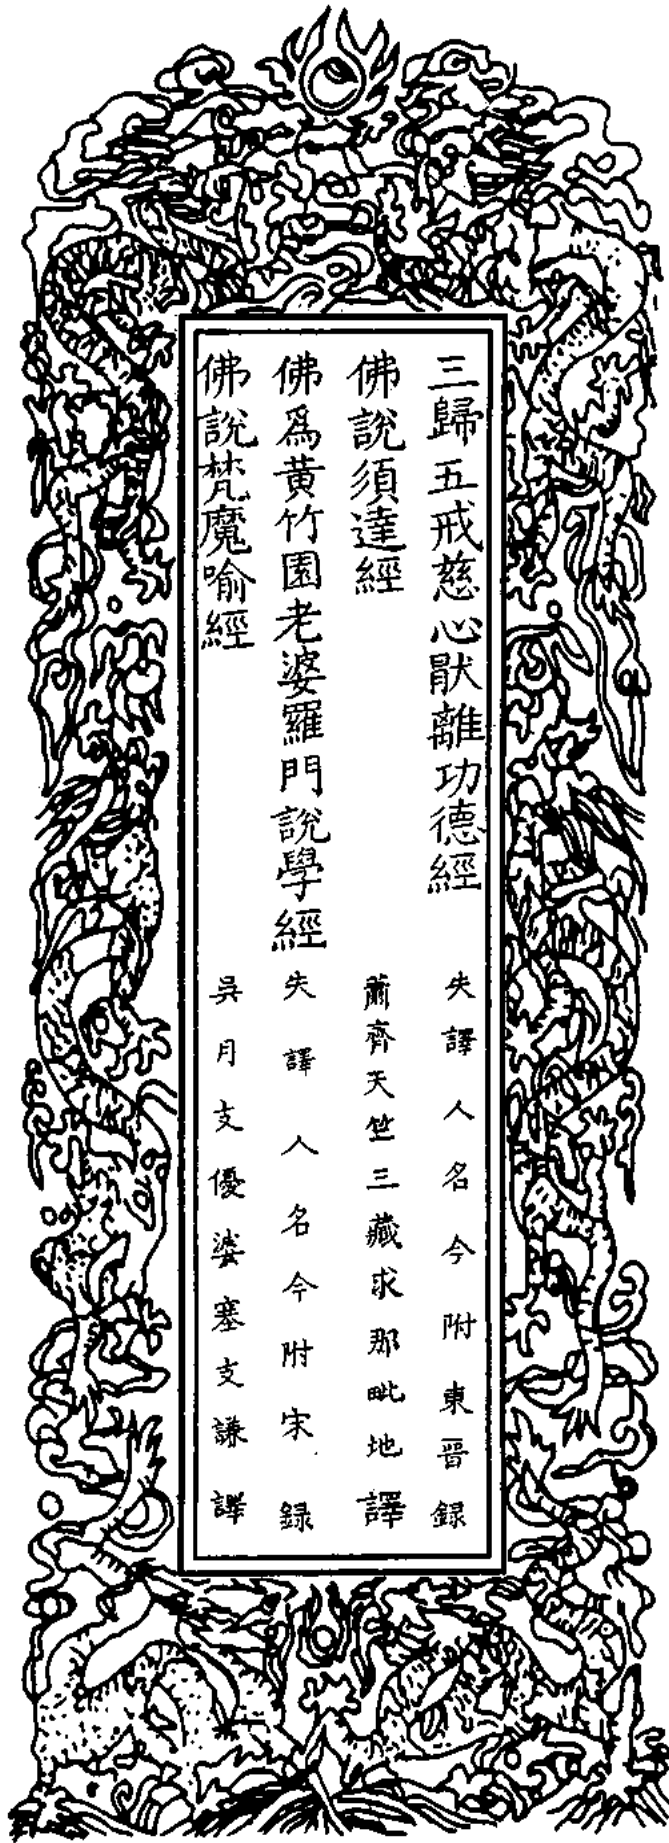 三歸五戒慈心猒離功德經 失譯人名今附東晉録
佛說須達經 蕭齊天竺三藏求那毗地譯
佛爲黃竹園老婆羅門說學經 失譯人名今附宋録
佛說梵魔喻經 吳月支優婆塞支謙譯